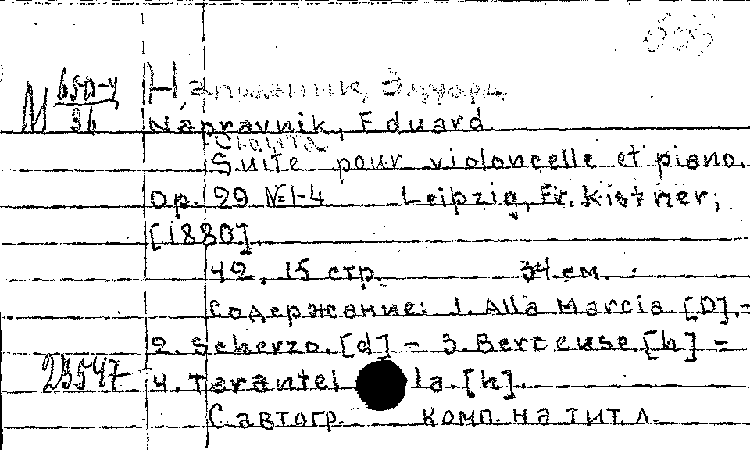 М 650-4/36
Направник, Эдуард
Napravnik, Eduard
Сюита
Suite pour violoncelle et piano.
Op. 29 №1-4 Leipzig, Fr. Kistner,
[1880].
42, 15 стр. 34 см.
Содержание: 1. Alla Marcia [D].-
2. Scherzo. [d] - 3. Berceuse [h] -
23547 4. Tarantella. [h].
С автогр. комп. на тит. л.